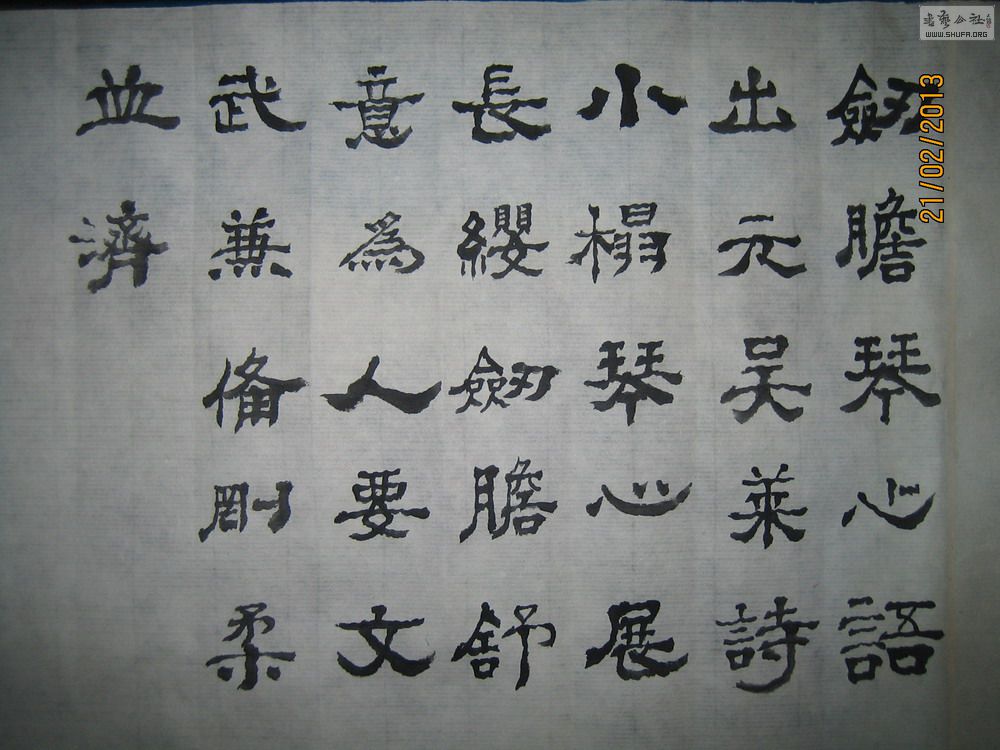 劒膽琴心語
出元吳萊詩
小榻琴心展
長纓劒膽舒
意為人要文
武兼備剛柔
並濟
21/02/2013
书艺公社
WWW.SHUFA.ORG